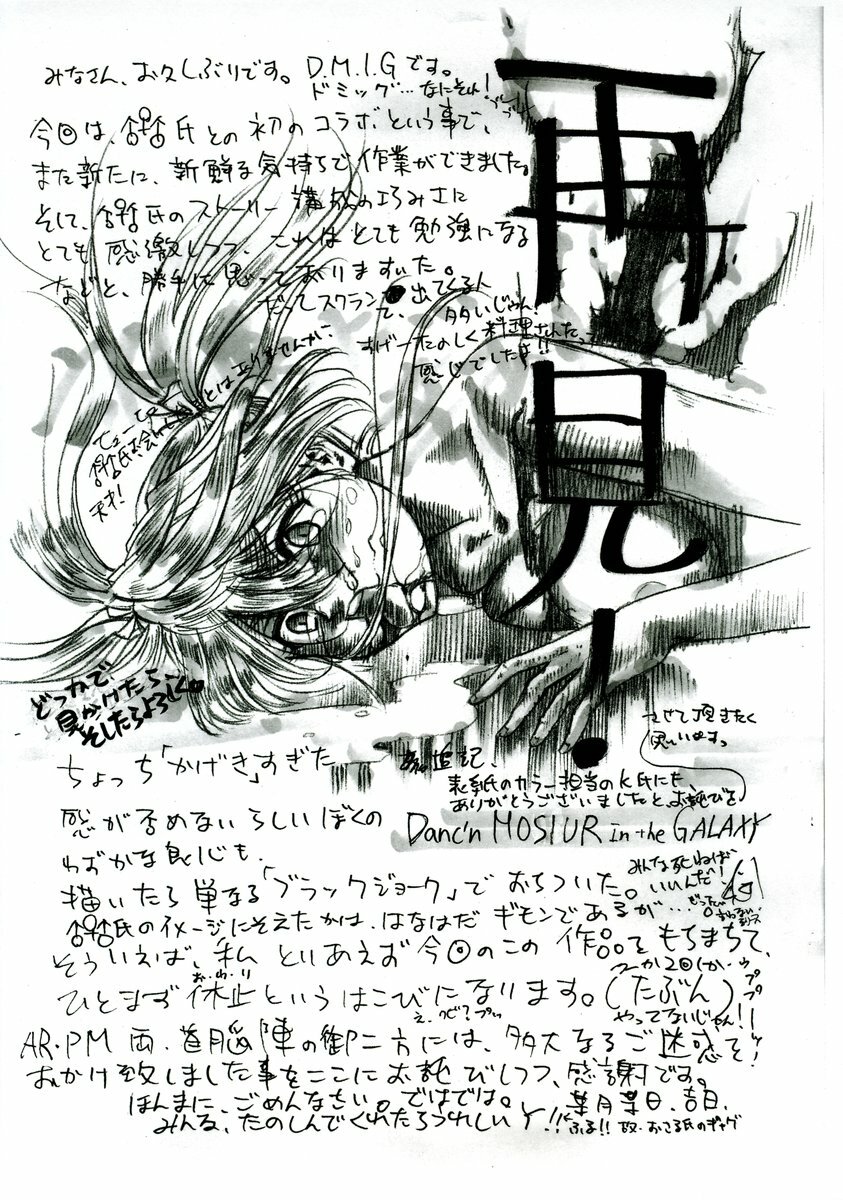 みなさん、お久しぶりです。D.M.I.Gです。
ドミッグ…なにそれ!
再見!
今回は、氏との初のコラボという事で、
また新たに、新鮮な気持ちで作業ができました。
そして、氏のストーリー構成の巧みさに
とても感激しつつ、これはとても勉強になる
などと、勝手に思っておりますいた。
だってスクラン 出てくる人
て、多いじゃん!
すげーたのしく料理されたっ
感じでしたよ!!
とはありませんか、
天才!
どっかで
見かけたら、
そしたらよろしく。
させて頂きたく
思いますっ
ちょっち「かげき」すぎた
追記、
表紙のカラー担当のK氏にも、
ありがとうございましたと、お詫びを
感が否めないらしいぼくの
Danc'n MOSIUR in the GALAXY
わずかな良心も、
みんな死ねば
いいんだ!
描いたら単なる「ブラックジョーク」でおちついた。
氏のイメージにそえたかは、はなはだギモンであるが…。
そういえば、私 といあえず今回のこの作品をもちまちて、
お・わ・り
ひとまず休止というはこびになります。(たぶん)
え、クビ?プッ
やってないじゃん!!
AR・PM両、首脳陣の御二方には、多大なるご迷惑を
おかけ致しました事をここにお詫びしつつ、感謝です。
ほんまに、ごめんなさい。ではでは。
葉月某日、吉日、
みんな、たのしんでくれたらうれしいY!!